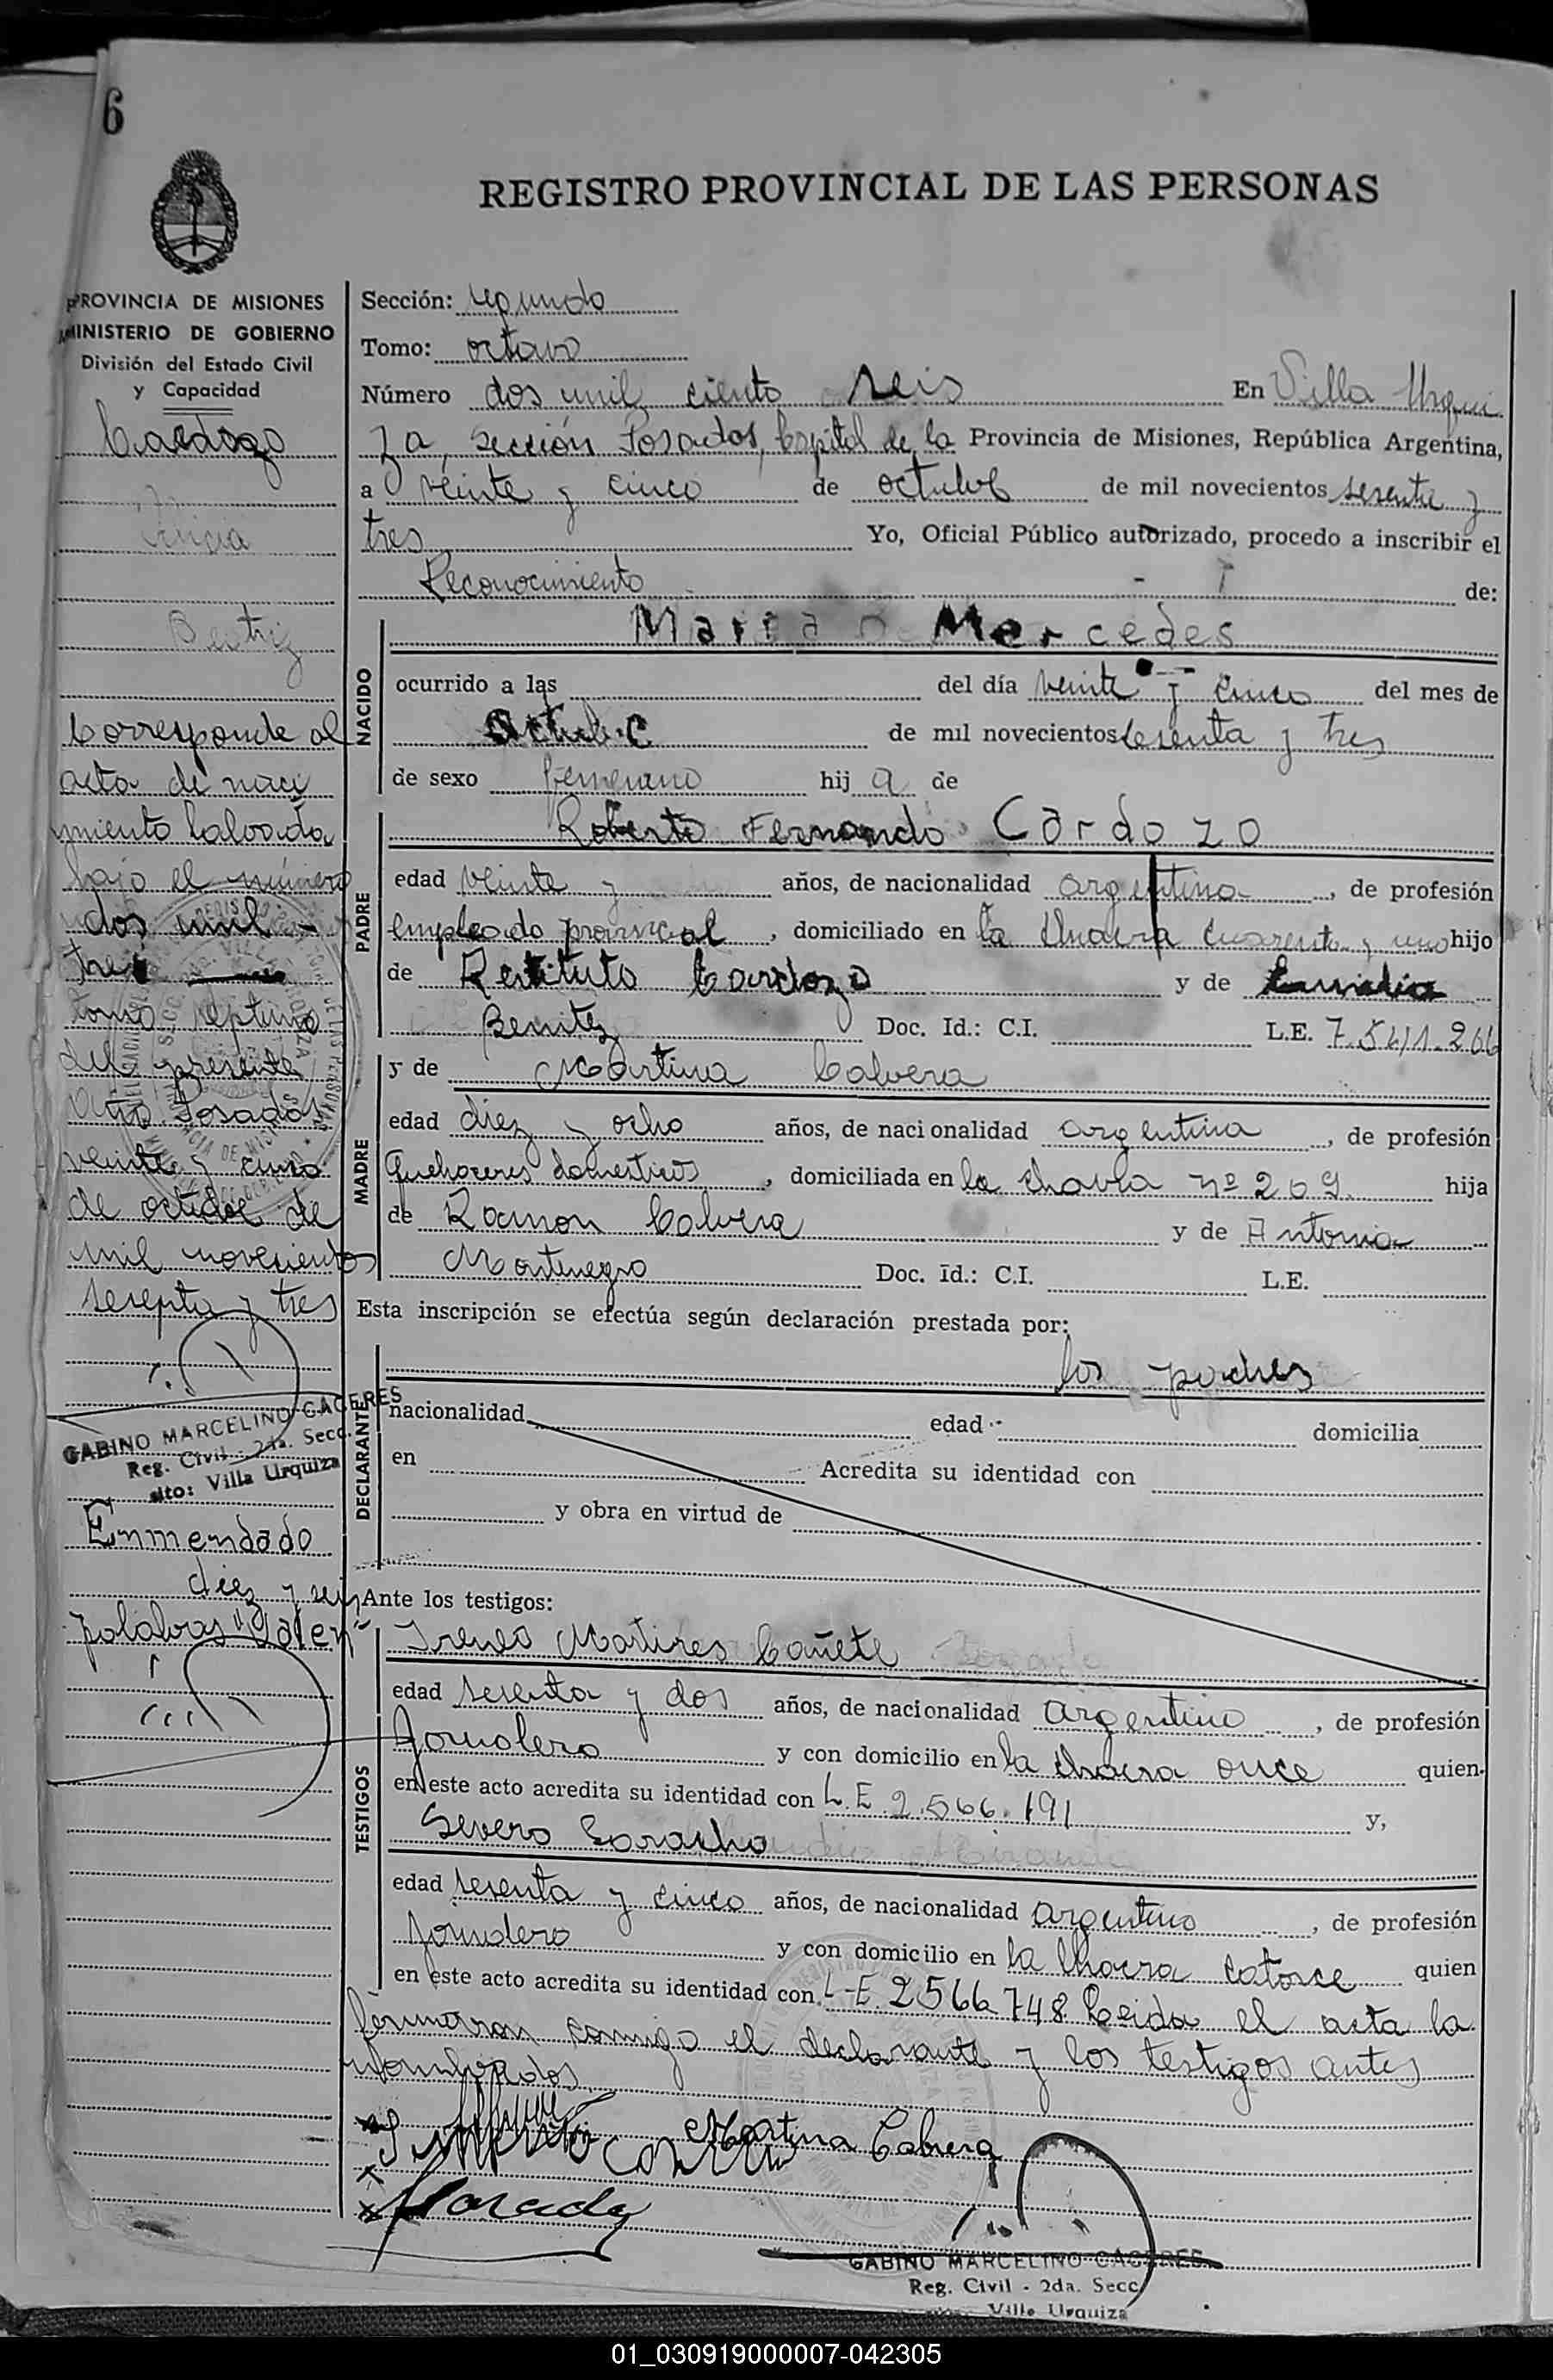 6
REGISTRO PROVINCIAL DE LAS PERSONAS
PROVINCIA DE MISIONES
MINISTERIO DE GOBIERNO
División del Estado Civil
y Capacidad
Cardozo
Beatriz
Corresponde al
acta de naci
miento labrada
bajo el número
dos mil
tres
tomo septimo
del presente
año. Posadas
veinte y cinco
de octubre de
mil novecientos
sesenta y tres
GABINO MARCELINO CACERES
Reg. Civil - 2da. Secc.
Villa Urquiza
Enmendado
diez y seis
palabras "Valen"
Sección: segundo
Tomo: octavo
Número dos mil ciento seis En Villa Urqui
za, sección Posadas, Capital de la Provincia de Misiones, República Argentina,
a veinte y cinco de octubre de mil novecientos sesenta y
tres Yo, Oficial Público autorizado, procedo a inscribir el
Reconocimiento de:
NACIDO
Maria Mercedes
ocurrido a las del día veinte y cinco del mes de
octubre de mil novecientos sesenta y tres
de sexo femenino hij a de
PADRE
Roberto Fernando Cardozo
edad veinte y años, de nacionalidad argentino, de profesión
empleado provincial, domiciliado en la chacra cuarenta y uno hijo
de Restituto Cardozo y de
Benitez Doc. Id.: C.I. L.E. 7.541.266
MADRE
y de Martina Cabrera
edad diez y ocho años, de nacionalidad argentina, de profesión
Quehaceres domesticos, domiciliada en la chacra nº 209 hija
de Ramon Cabrera y de Antonia
Montenegro Doc. Id.: C.I. L.E.
Esta inscripción se efectúa según declaración prestada por:
DECLARANTE
los padres
nacionalidad edad domicilia
en Acredita su identidad con
y obra en virtud de
Ante los testigos:
TESTIGOS
Ireneo Martires Cañete
edad sesenta y dos años, de nacionalidad argentino, de profesión
Jornalero y con domicilio en la chacra once quien
en este acto acredita su identidad con L.E. 2.566.191 y,
Severo
edad sesenta y cinco años, de nacionalidad argentino, de profesión
Jornalero y con domicilio en la chacra catorce quien
en este acto acredita su identidad con L-E. 2566748 Leida el acta la
firmaron conmigo el declarante y los testigos antes
nombrados
Martina Cabrera
GABINO MARCELINO CACERES
Reg. Civil - 2da. Secc
Villa Urquiza
01_030919000007-042305